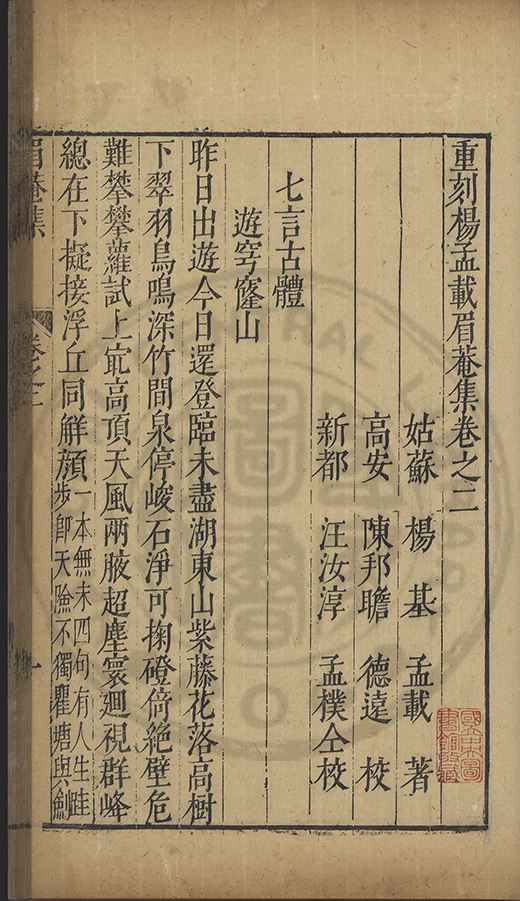 重刻楊孟載眉菴集卷之二
姑蘇 楊基 孟載 著
高安 陳邦瞻 德遠 校
新都 汪汝淳 孟樸仝校
七言古體
遊穹窿山
昨日出遊今日還登臨未盡湖東山紫藤花落高樹
下翠羽鳥鳴深竹間泉停峻石淨可掬磴倚絶壁危
難攀攀蘿試上㝡高頂天風兩腋超塵寰迴視群峰
總在下擬接浮丘同解顔一本無末四句有人生跬
步卽天險不獨瞿塘與劍
眉菴集
卷之二
一
國立中央圖書館收藏